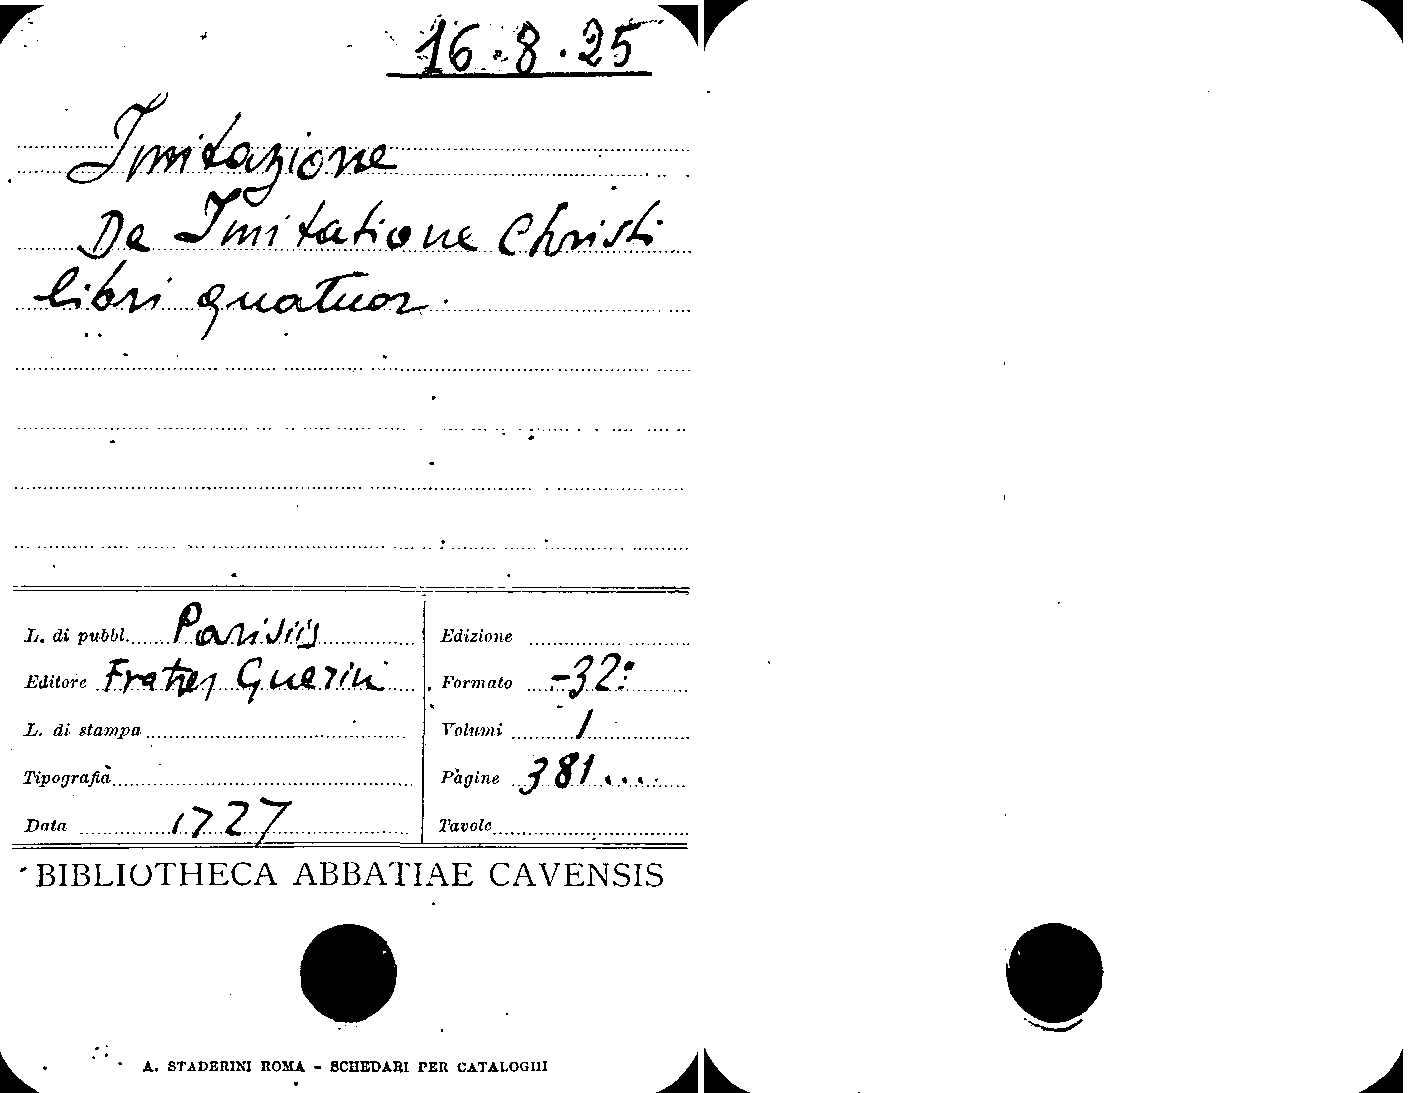 16.8.25
Imitazione
De Imitatione Christi
libri quatuor.
L. di pubbl. Parisiis
Editore Frates Guerin
L. di stampa
Tipografia
Data 1727
Edizione
Formato -32º
Volumi 1
Pagine 381....
Tavole
BIBLIOTHECA ABBATIAE CAVENSIS
A. STADERINI ROMA - SCHEDARI PER CATALOGHI